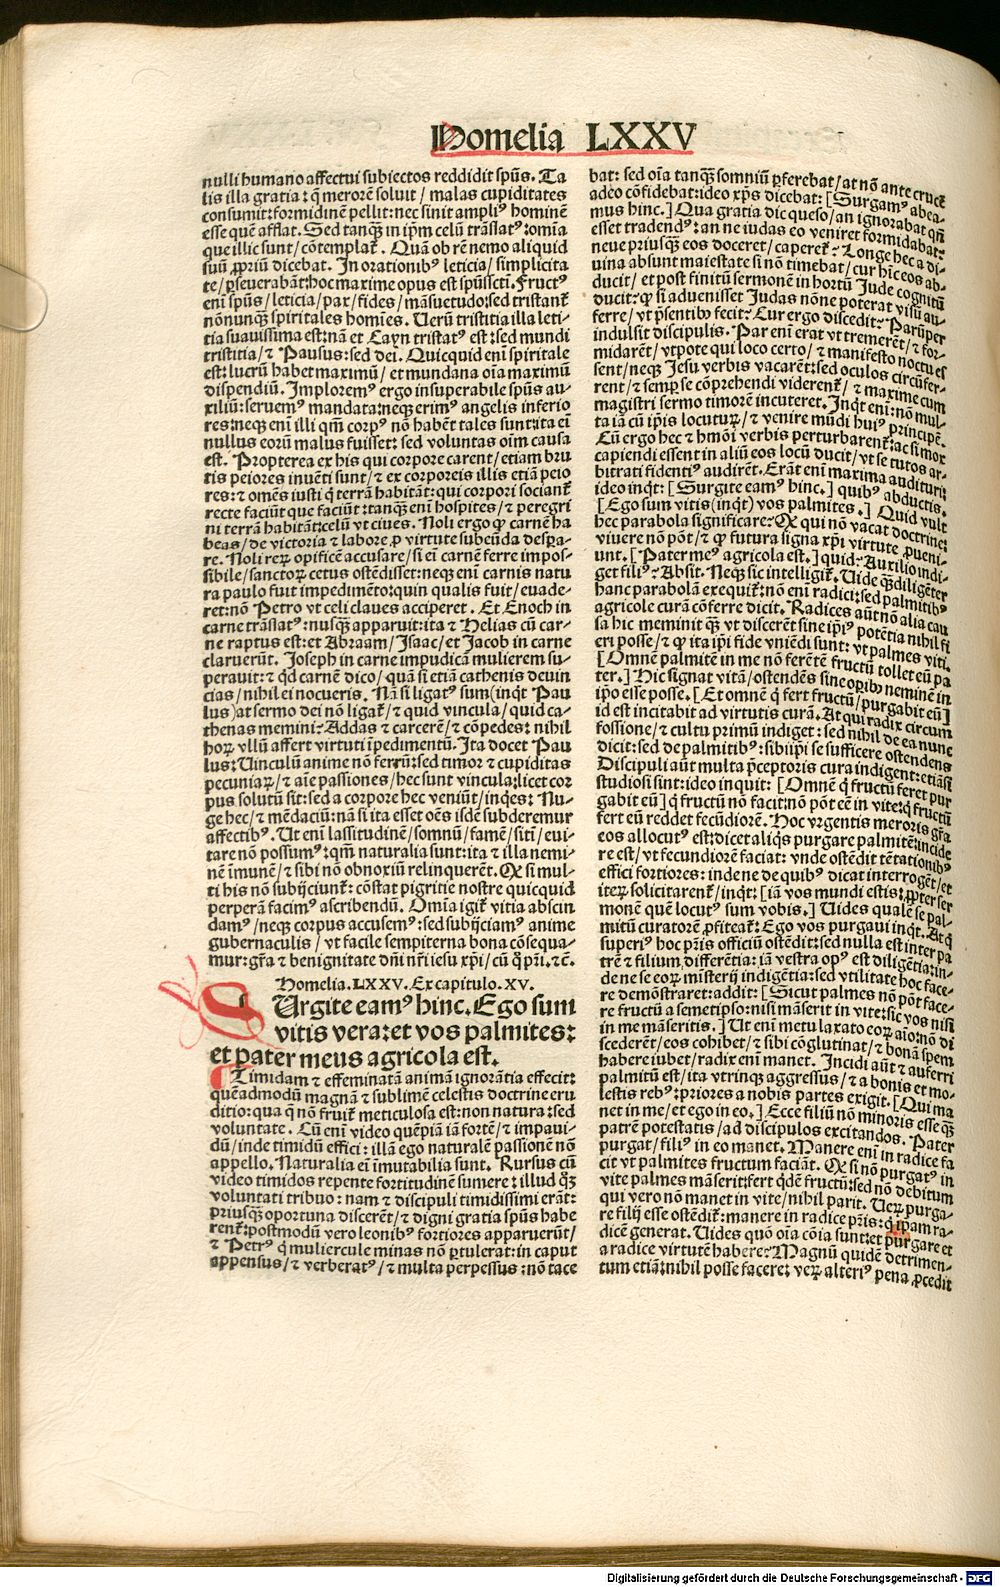 Homelia LXXV
nulli humano affectui subiectos reddidit spūs. Ta
lis illa gratia: q̄ merorē soluit / malas cupiditates
consumit: formidinē pellit: nec sinit ampliꝰ hominē
esse quē afflat. Sed tanqꝫ in ip̄m celū trāslatꝰ: omīa
que illic sunt / cōtemplat̄. Quā ob rē nemo aliquid
suū ꝓpriū dicebat. In orationibꝰ leticia / simplicita
te / ꝑseuerabāt: hoc maxime opus est spūssctī. Fructꝰ
enī spūs / leticia / pax / fides / māsuetudo: sed tristant̄
nōnunqꝫ spiritales homīes. Verū tristitia illa leti-
tia suauissima est: nā et Cayn tristatꝰ est: sed mundi
tristitia / ⁊ Pausus: sed dei. Quicquid enī spiritale
est: lucrū habet maximū / et mundana oīa maximū
dispendiū. Imploremꝰ ergo insuperabile spūs au-
xiliū: seruemꝰ mandata: neqꝫ erimꝰ angelis inferio
res: neqꝫ enī illi qm̄ corpꝰ nō habēt tales sunt: ita ei
nullus eorū malus fuisset: sed voluntas oīm causa
est. Propterea ex his qui corpore carent / etiam bru
tis peiores inuēti sunt / ⁊ ex corporeis illis etiā peio
res: ⁊ omēs iusti q̄ terrā habitāt: qui corpori sociant̄
recte faciūt que faciūt: tanqꝫ enī hospites / ⁊ peregri
ni terrā habitāt: celū vt ciues. Noli ergo ꝙ carnē ha
beas / de victoria ⁊ labore ꝓ virtute subeūda despa-
re. Noli reꝝ opificē accusare / si eī carnē ferre impos-
sibile / sanctoꝝ cetus ostēdisset: neqꝫ enī carnis natu
ra paulo fuit impedimēto: quin qualis fuit / euade-
ret: nō Petro vt celi claues acciperet. Et Enoch in
carne trāslatꝰ: nusqꝫ apparuit: ita ⁊ Helias cū car-
ne raptus est: et Abraam / Isaac / et Jacob in carne
claruerūt. Joseph in carne impudicā mulierem su-
perauit: ⁊ qd carnē dico / quā si etiā cathenis deuin
cias / nihil ei nocueris. Nā si ligatꝰ sum (inqt Pau
lus) at sermo dei nō ligat̄ / ⁊ quid vincula / quid ca-
thenas memini? Addas ⁊ carcerē / ⁊ cōpedes: nihil
hoꝝ vllū affert virtuti īpedimentū. Ita docet Pau
lus: Vinculū anime nō ferrū: sed timor ⁊ cupiditas
pecuniaꝝ / ⁊ aīe passiones / hec sunt vincula: licet cor
pus solutū sit: sed a corpore hec veniūt / inqes: Nu-
ge hec / ⁊ mēdaciū: nā si ita esset oēs isdē subderemur
affectibꝰ. Ut enī lassitudinē / somnū / famē / sitī / eui-
tare nō possumꝰ: qm̄ naturalia sunt: ita ⁊ illa nemi-
nē īmunē / ⁊ sibi nō obnoxiū relinquerēt. Qꝫ si mul-
ti his nō subijciunt̄: cōstat pigritie nostre quicquid
perperā facimꝰ ascribendū. Omīa igit̄ vitia abscin
damꝰ / neqꝫ corpus accusemꝰ: sed subijciamꝰ anime
gubernaculis / vt facile sempiterna bona cōsequa-
mur: gr̄a ⁊ benignitate dn̄i nr̄i iesu xp̄i / cū q̄ pr̄i. ⁊c̄.
Homelia. LXXV. Ex capitulo. XV.
SUrgite eamꝰ hinc. Ego sum
vitis vera: et vos palmites:
et pater meus agricola est.
Timidam ⁊ effeminatā animā ignorātia effecit:
quēadmodū magnā ⁊ sublimē celestis doctrine eru
ditio: qua q̄ nō fruit̄ meticulosa est: non natura: sed
voluntate. Cū enī video quēpiā iā fortē / ⁊ impaui-
dū / inde timidū effici: illā ego naturalē passionē nō
appello. Naturalia eī īmutabilia sunt. Rursus cū
video timidos repente fortitudinē sumere: illud qꝫ
voluntati tribuo: nam ⁊ discipuli timidissimi erāt:
priusqꝫ oportuna discerēt / ⁊ digni gratia spūs habe
rent̄: postmodū vero leonibꝰ fortiores apparuerūt /
⁊ Petrꝰ q̄ muliercule minas nō ꝑtulerat: in caput
appensus / ⁊ verberatꝰ / ⁊ multa perpessus: nō tace
bat: sed oīa tanqꝫ somniū ꝑferebat / at nō ante crucē
adeo cōfidebat: ideo xp̄s dicebat: [Surgamꝰ abea-
mus hinc.] Qua gratia dic queso / an ignorabat qn̄
esset tradendꝰ: an ne iudas eo veniret formidabat:
neue priusqꝫ eos doceret / caperet̄? Longe hec a di-
uina absunt maiestate si nō timebat / cur hīc eos ab-
ducit / et post finitū sermonē in hortū Jude cognitū
ducit: ꝙ si aduenisset Judas nōne poterat visū au-
ferre / vt p̄sentibꝰ fecit? Cur ergo discedit? Parūꝑ
indulsit discipulis. Par enī erat vt tremerēt / ⁊ for-
midarēt / vtpote qui loco certo / ⁊ manifesto noctu es
sent / neqꝫ Jesu verbis vacarēt: sed oculos circūfer-
rent / ⁊ semꝑ se cōprehendi viderent̄ / ⁊ maxime cum
magistri sermo timorē incuteret. Inqt eni: nō mul-
ta iā cū ip̄is locuturꝰ / ⁊ venire mūdi huiꝰ principē.
Cū ergo hec ⁊ hmōi verbis perturbarent̄: ac si mox
capiendi essent in aliū eos locū ducit / vt se tutos ar-
bitrati fidentiꝰ audirēt. Erāt enī maxima audituri:
ideo inqt: [Surgite eamꝰ hinc.] quibꝰ abductis.
[Ego sum vitis (inqt) vos palmites.] Quid vult
hec parabola significare? Qꝫ qui nō vacat doctrine:
viuere nō pōt / ⁊ ꝙ futura signa xp̄i virtute ꝓueni-
unt. [Pater meꝰ agricola est.] quid? Auxilio indi-
get filiꝰ? Absit. Neqꝫ sic intelligit̄. Vide qꝫ diligēter
hanc parabolā exequit̄: nō enī radici: sed palmitibꝰ
agricole curā cōferre dicit. Radices aūt nō alia cau
sa hic meminit qꝫ vt discerēt sine ip̄iꝰ potētia nihil fi
eri posse / ⁊ ꝙ ita ip̄i fide vniēdi sunt: vt palmes viti.
[Omnē palmitē in me nō ferētē fructū tollet eū pa
ter.] Hic signat vitā / ostēdēs sine oꝑibꝰ neminē in
ip̄o esse posse. [Et omnē q̄ fert fructū / purgabit eū]
id est incitabit ad virtutis curā. At qui radix circum
fossione / ⁊ cultu primū indiget: sed nihil de ea nunc
dicit: sed de palmitibꝰ: sibiip̄i se sufficere ostendens
Discipuli aūt multa p̄ceptoris cura indigent: etiāsi
studiosi sint: ideo inquit: [Omnē q̄ fructū feret pur
gabit eū] q̄ fructū nō facit: nō pōt eē in vite: q̄ fructū
fert eū reddet fecūdiorē. Hoc vrgentis meroris gr̄a
eos allocutꝰ est: dicet aliqꝫ purgare palmitē: incide
re est / vt fecundiorē faciat: vnde ostēdit tētationibꝰ
effici fortiores: inde ne de quibꝰ dicat interrogēt / et
iteꝝ solicitarent̄ / inqt: [iā vos mundi estis: ꝓpter ser
monē quē locutꝰ sum vobis.] Vides quale se pal-
mitū curatorē ꝓfiteat̄: Ego vos purgaui inqt. At q̄
superiꝰ hoc pr̄is officiū ostēdit: sed nulla est inter pa
trē ⁊ filium differētia: iā vestra opꝰ est diligētia: in-
de ne se eoꝝ misterij indigētia: sed vtilitate hoc face-
re demōstraret: addit: [Sicut palmes nō pōt face-
re fructū a semetipso: nisi māserit in vite: sic vos nisi
in me māseritis.] Ut enī metu laxato eoꝝ aīo: nō di
scederēt / eos cohibet / ⁊ sibi cōglutinat / ⁊ bonā spem
habere iubet / radix enī manet. Incidi aūt ⁊ auferri
palmitū est / ita vtrinqꝫ aggressus / ⁊ a bonis et mo-
lestis rebꝰ: priores a nobis partes exigit. [Qui ma
net in me / et ego in eo.] Ecce filiū nō minoris esse qꝫ
patrē potestatis / ad discipulos excitandos. Pater
purgat / filiꝰ in eo manet. Manere enī in radice fa
cit vt palmites fructum faciāt. Qꝫ si nō purgatꝰ in
vite palmes māserit: fert qdē fructū: sed nō debitum
qui vero nō manet in vite / nihil parit. Ueꝝ purga-
re filij esse ostēdit̄: manere in radice pr̄is: q̄ ip̄am ra-
dicē generat. Vides quō oīa cōia sunt: et purgare et
a radice virtutē habere? Magnū quidē detrimen-
tum etiā: nihil posse facere: veꝝ alteriꝰ pena ꝓcedit
Digitalisierung gefördert durch die Deutsche Forschungsgemeinschaft - DFG